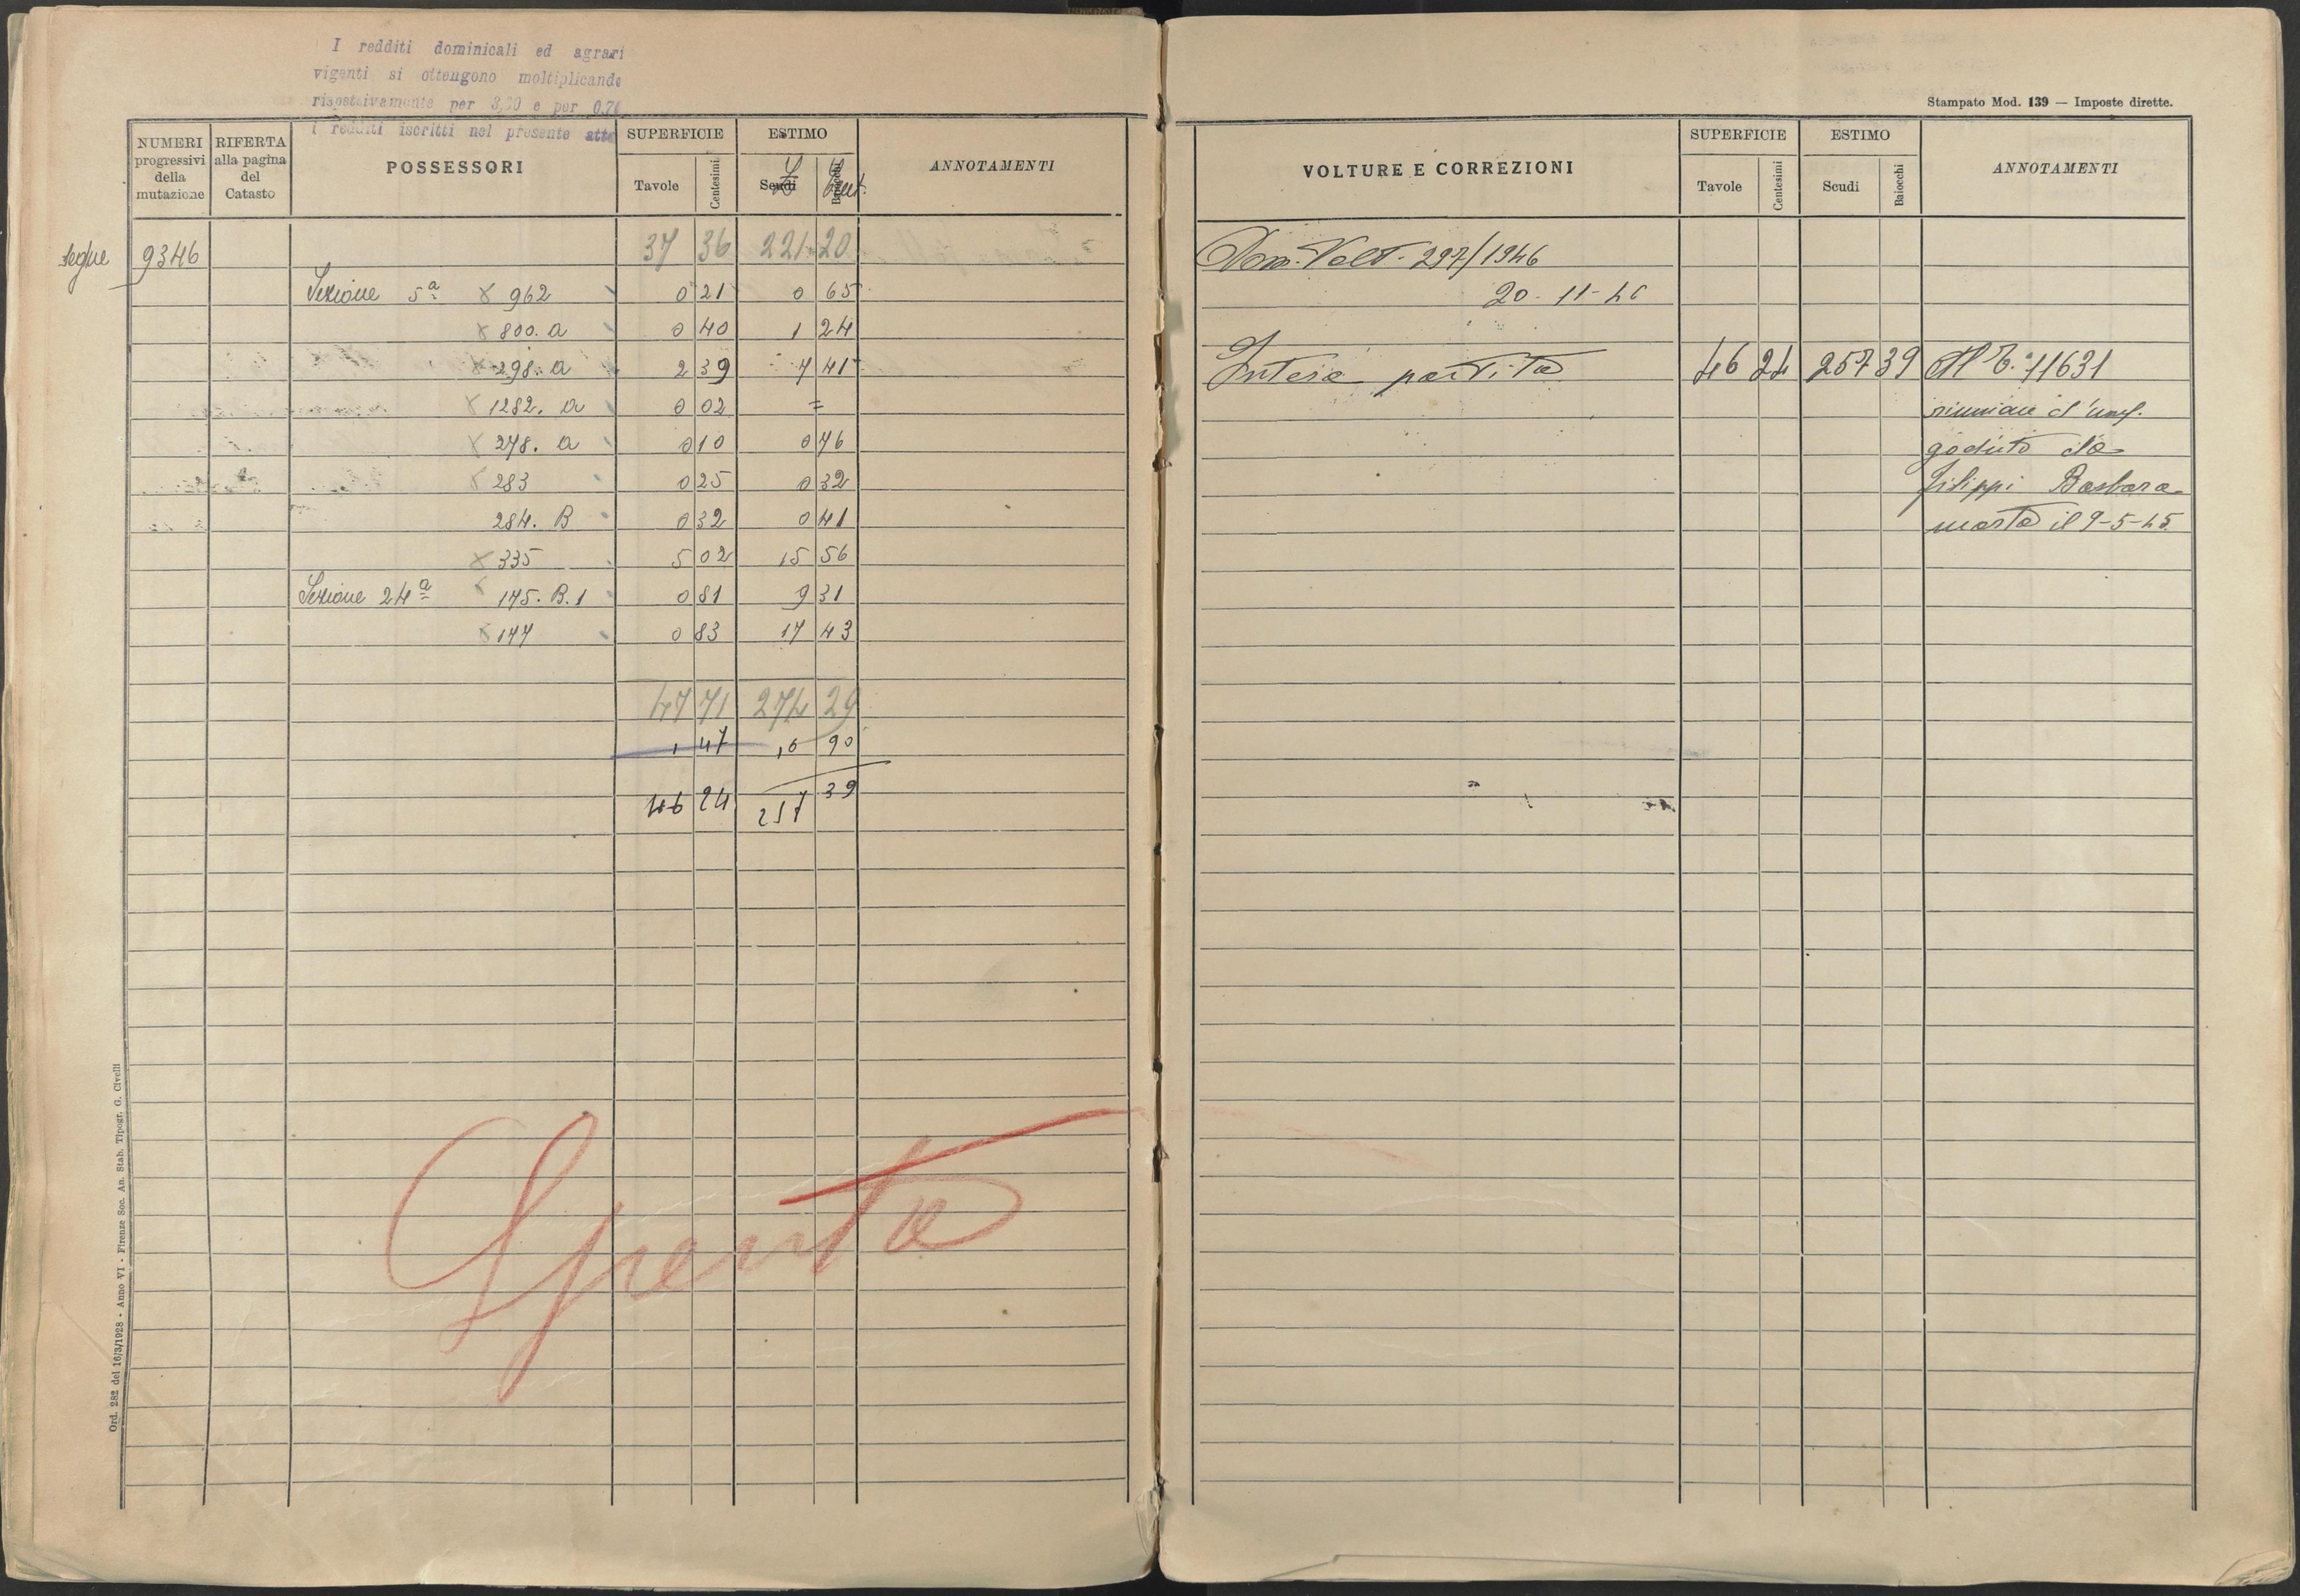 I redditi dominicali ed agrari
vigenti si ottengono moltiplicando
rispettivamente per e per
i redditi iscritti nel presente atto
Stampato Mod. 139 — Imposte dirette.
NUMERI progressivi della mutazione RIFERTA alla pagina del Catasto POSSESSORI SUPERFICIE Tavole Centesimi ESTIMO Scudi Baiocchi ANNOTAMENTI
segue 9346 37 36 221 20
Sezione 5ª 962 0 21 0 65
800. a 0 40 1 24
298. a 2 39 7 41
1282. a 0 02 =
278. a 0 10 0 76
283 0 25 0 32
284. B 0 32 0 41
335 5 02 15 56
Sezione 24ª 175. B. 1 0 81 9 31
177 0 83 17 43
47 71 274 29
1 47 16 90
46 24 257 39
Spenta
Ord. 282 del 16/3/1928 - Anno VI - Firenze Soc. An. Stab. Tipogr. G. Civelli
VOLTURE E CORREZIONI SUPERFICIE Tavole Centesimi ESTIMO Scudi Baiocchi ANNOTAMENTI
Dom. Volt. 297/1946
20-11-46
Intera partita 46 24 257 39 Al 11631
riunione d'usuf.
goduto da
Filippi Barbara
morta il 9-5-45